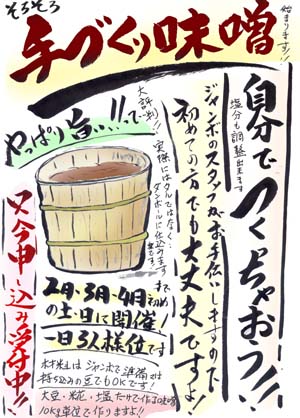 そろそろ
手づくり味噌
始まります!!
自分で
つくっちゃおう!!
塩分も調整出来ます
ジャンボのスタッフがお手伝いしますので
初めての方でも大丈夫ですよ!
大評判!!
やっぱり旨い!!で
実際にはタルではなく…
ダンボールに仕込みます
2月・3月・4月初めまで
の土・日に開催!
一日3人様位です
材料はジャンボで準備です
持ち込みの豆でもOKです!
大豆・糀・塩だけで作る味噌
10kg単位で作りますよ!!
只今申し込み受付中!!